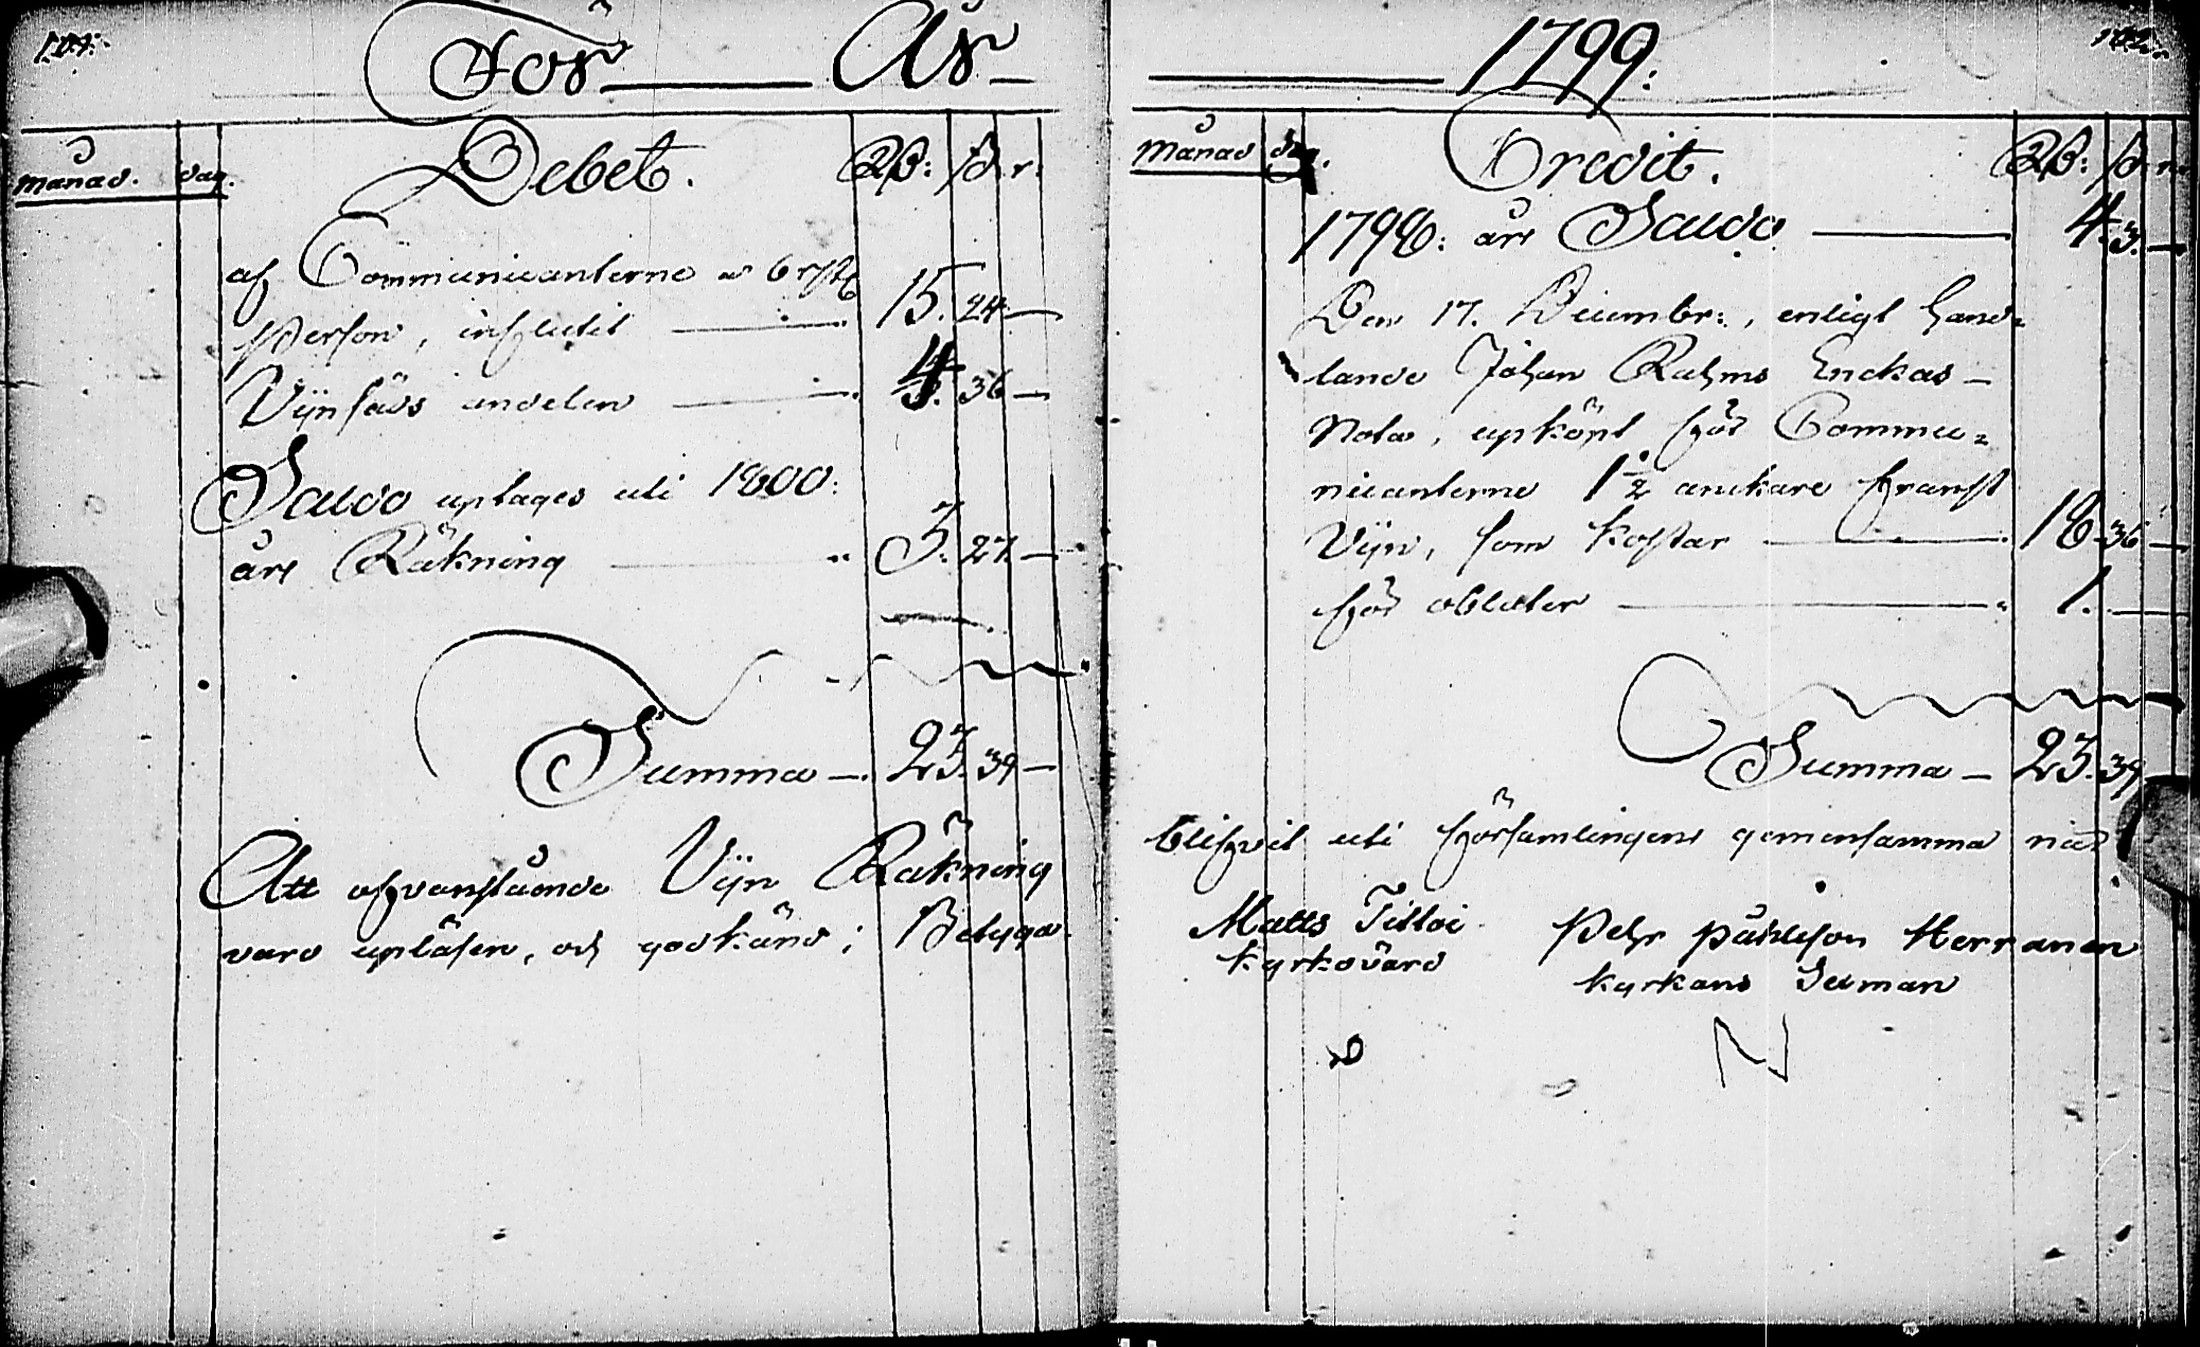 För År
Månad. dag. Debet. RD: sk. r:
af Communicanterne a 6 rst
Person, influtit 15. 24 —
Vijnsäds andelen 4. 36 —
Saldo uptages uti 1800:
års Räkning 3. 27 —
Summa — 23. 39 —
Att ofvanstående Vijn Räkning
vard upläsen, och godkänd; Betyga
1799:
Månad dag. Credit. RD: sk. r:
1798: års Saldo 4. 3. —
Den 17. Decembr:, enligt Hand=
lande Johan Rahms Enckas —
Nota, upköpt för Commu=
nicanterne 1 1/2 anckare Franst
Vijn, som kostar 18. 36 —
för oblater 1. —
Summa — 23. 39
blifvit uti Församlingens gemensamma
Matts Tilloi Pehr Påhlsson Herranen
kyrkovärd kyrkans Sexman
N